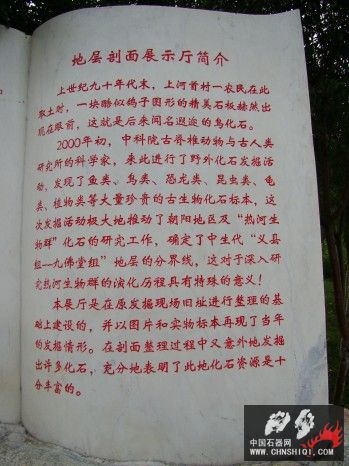 地层剖面展示厅简介
上世纪九十年代末，上河首村一农民在此
取土时，一块酷似鸽子图形的精美石板赫然出
现在眼前，这就是后来闻名遐迩的鸟化石。
2000年初，中科院古脊椎动物与古人类
研究所的科学家，来此进行了野外化石发掘活
动，发现了鱼类、鸟类、恐龙类、昆虫类、龟
类、植物类等大量珍贵的古生物化石标本，这
次发掘活动极大地推动了朝阳地区及“热河生
物群”化石的研究工作，确定了中生代“义县
组—九佛堂组”地层的分界线，这对于深入研
究热河生物群的演化历程具有特殊的意义！
本展厅是在原发掘现场旧址进行整理的基
础上建设的，并以图片和实物标本再现了当年
的发掘情形。在剖面整理过程中又意外地发掘
出许多化石，充分地表明了此地化石资源是十
分丰富的。
中国石器网
WWW.CHNSHIQI.COM